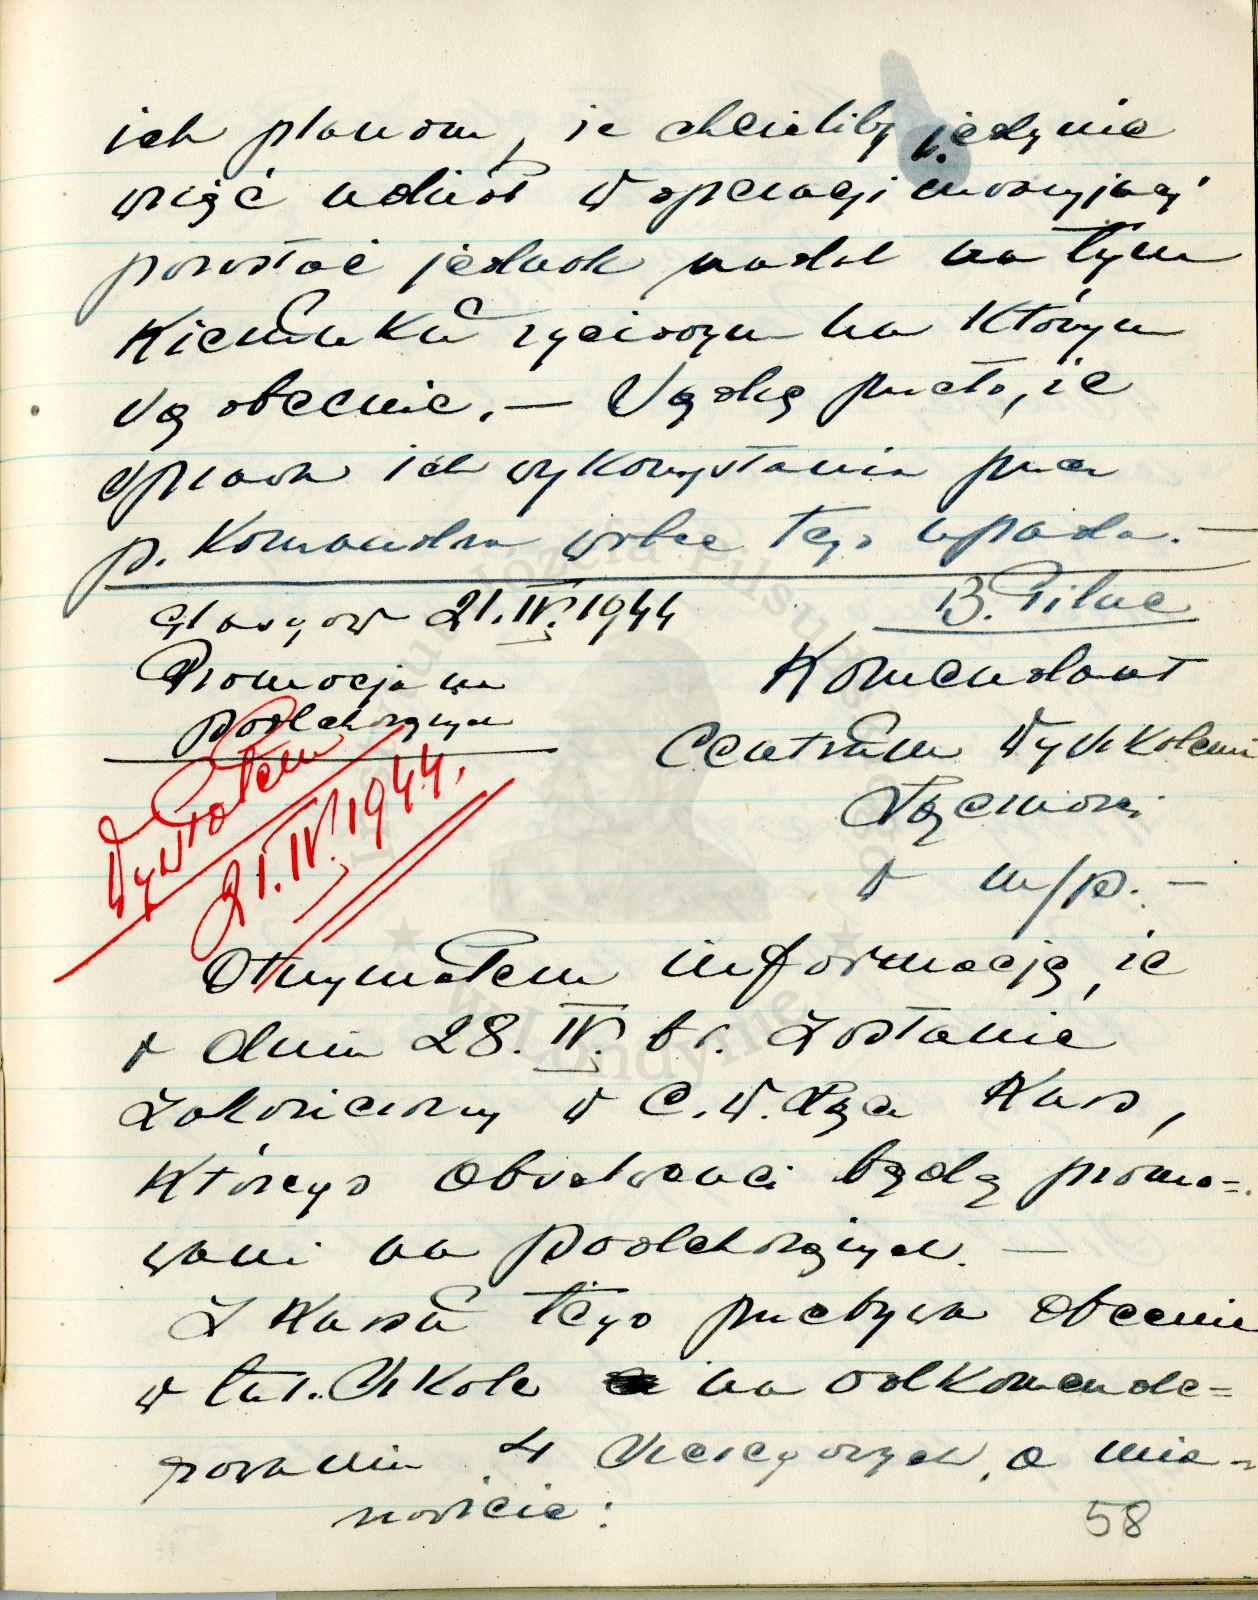 ich planom, że chcieliby jedynie
wziąć udział w operacji inwazyjnej
pozostać jednak nadal na tym
kierunku życiowym na którym
są obecnie. — Sądzę przeto, że
sprawa ich wykorzystania przez
p. Komandora wobec tego upada. —
Glasgow 21.IV.1944
B. Pilne
Promocja na
podchorążych
Komendant
Centrum Wyszkolenia
Łączności
w m/p. —
Wysłałem
21.IV.1944.
Otrzymałem informację, że
w dniu 28.IV. br. zostanie
zakończony w C.W.Łącz. Kurs,
którego absolwenci będą promo=
wani na podchorążych. —
Z kursu tego przebywa obecnie
w tut. Szkole na odkomende=
rowaniu 4 szeregowych, a mia=
nowicie:
58
Instytut Józefa Piłsudskiego
w Londynie